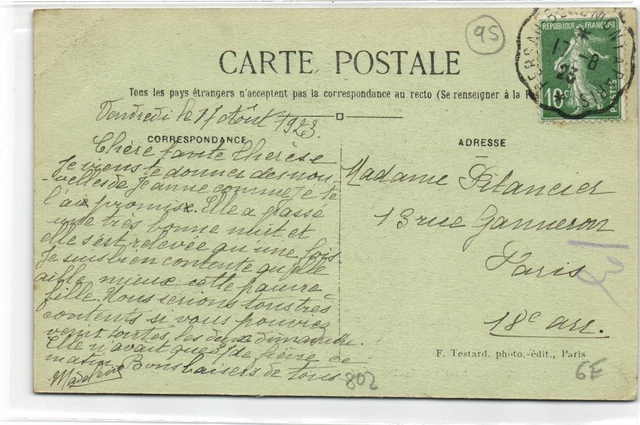 95
CARTE POSTALE
Tous les pays étrangers n'acceptent pas la correspondance au recto (Se renseigner à la
RÉPUBLIQUE FRANÇAISE
10c
POSTES
17-8
23
Vendredi le 17 Août 1923.
CORRESPONDANCE
Chère tante Thérèse
Je viens te donner des nou
velles de Jeanne comme je te
l'ai promis. Elle a passé
une très bonne nuit et
elle s'est relevée qu'une fois
Je suis bien contente qu'elle
aille mieux cette pauvre
fille. Nous serions tous très
contents si vous pouvez
venir toutes les deux dimanche.
Elle n'avait que de fièvre ce
matin. Bons baisers de tous
Madeleine
ADRESSE
Madame
13 rue Ganneron
Paris
18e arr.
F. Testard, photo.-édit., Paris
802
6E